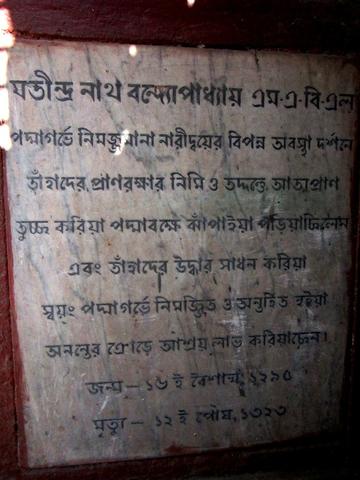 যতীন্দ্র নাথ বন্দ্যোপাধ্যায় এম-এ-বি-এল
পদ্মাগর্ভে নিমজ্জমানা নারীদ্বয়ের বিপন্ন অবস্থা দর্শনে
তাঁহাদের প্রাণরক্ষার নিমিত্ত তদ্দন্ডে আত্মপ্রাণ
তুচ্ছ করিয়া পদ্মাবক্ষে ঝাঁপাইয়া পড়িয়াছিলেন
এবং তাঁহাদের উদ্ধার সাধন করিয়া
স্বয়ং পদ্মাগর্ভে নিমজ্জিত ও অন্তর্হিত হইয়া
অনন্তের ক্রোড়ে আশ্রয় লাভ করিয়াছেন।
জন্ম — ১৬ ই বৈশাখ, ১২৯০
মৃত্যু — ১২ ই পৌষ, ১৩২৩